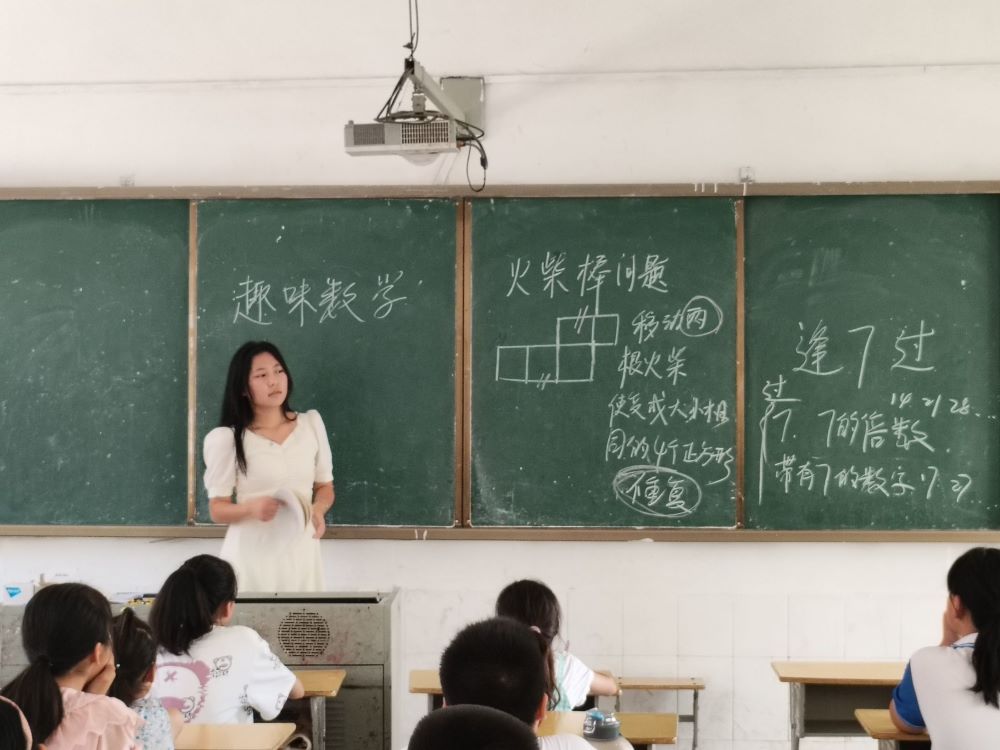 趣味数学
火柴棒问题
移动两
根火柴
使变成大小相
同的4个正方形
不重复
逢7过
过
7. 7的倍数 14 21 28...
带有7的数字 17 27